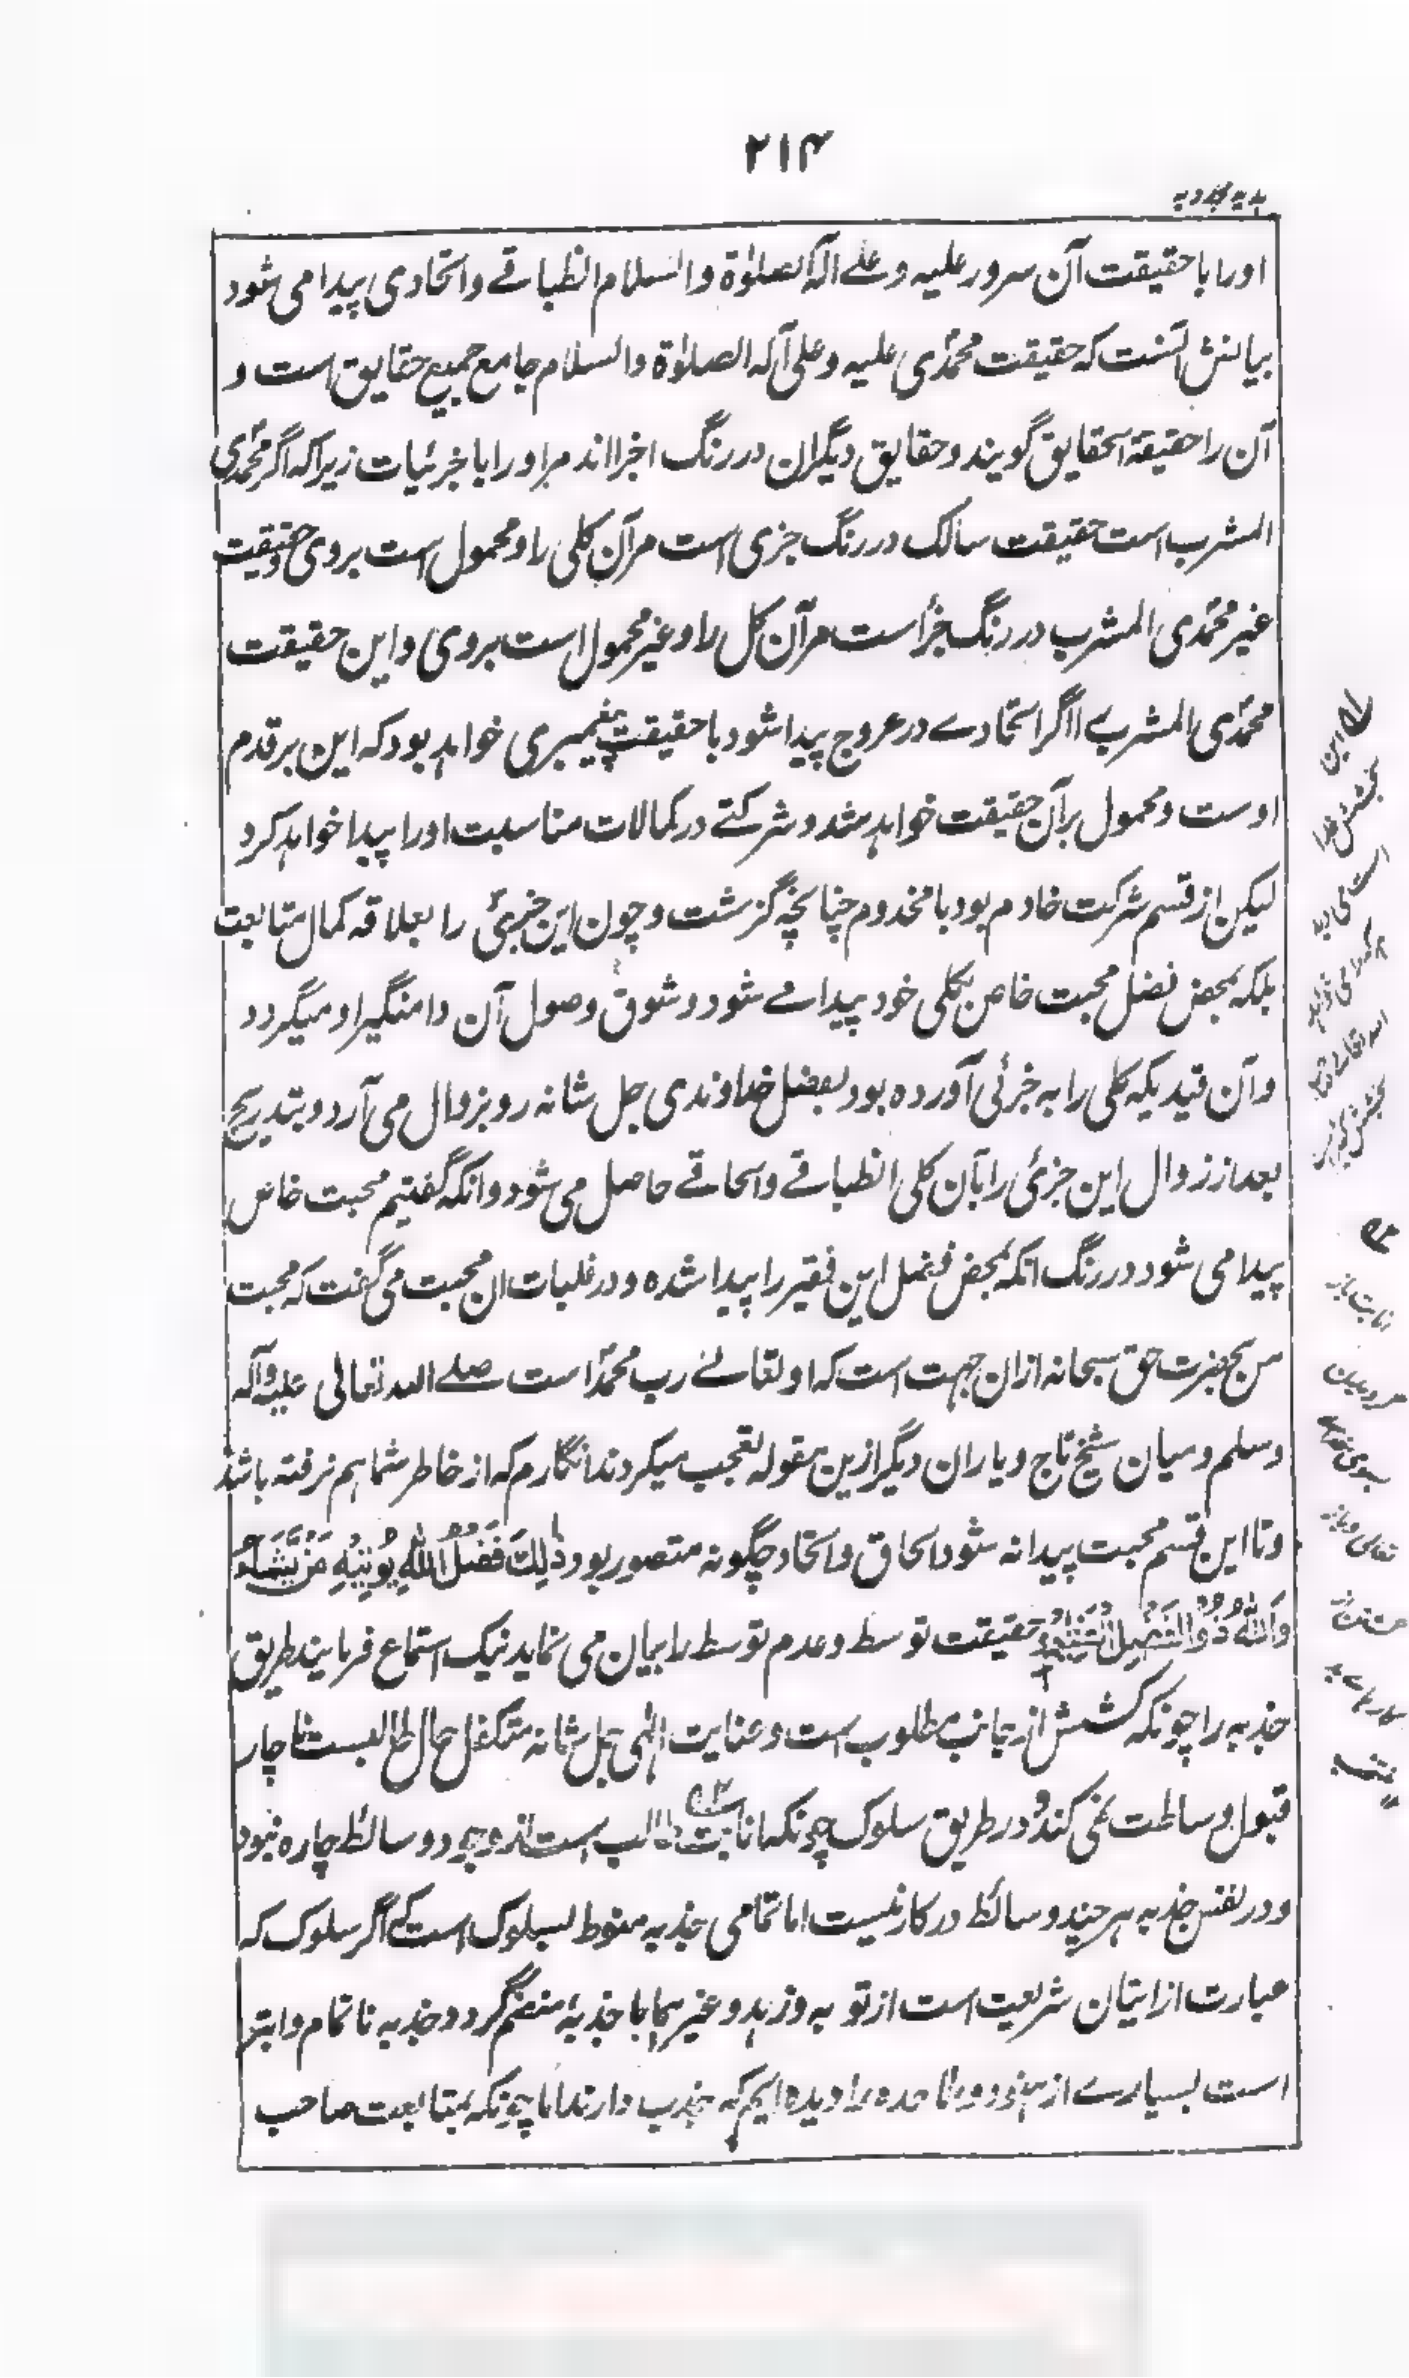 ۲۱۴
ہدیہ مجددیہ
اورا با حقیقت آن سرور علیہ و علے آلہ الصلوٰة والسلام انطباقے و اتحادی پیدا می شود
بیانش آنست کہ حقیقت محمدی علیہ و علی آلہ الصلوٰة والسلام جامع جمیع حقایق است و
آن را حقیقۃ الحقایق گویند و حقایق دیگران در رنگ اجزا اند مراورا یا جزئیات زیرا کہ اگر محمدی
المشرب است حقیقت سالک در رنگ جزی است مرآن کلی را و محمول است بروی و حقیقت
غیر محمدی المشرب در رنگ جزٔ است مرآن کل را و غیر محمول است بروی و این حقیقت
محمدی المشرب را اگر اتحادے در عروج پیدا شود با حقیقت پیغمبری خواہد بود کہ این بر قدم
اوست و محمول برآن حقیقت خواہد شد و شرکتے در کمالات مناسبت اورا پیدا خواہد کرد
لیکن از قسم شرکت خادم بود با مخدوم چنانچہ گزشت و چون این جزئی را بعلاقہ کمال متابعت
بلکہ بمحض فضل محبت خاص بکلی خود پیدا مے شود و شوق وصول آن دامنگیر او میگردد
و آن قیدیکہ کلی را بہ جزئی آوردہ بود بفضل خداوندی جل شانہ رو بزوال می آرد و بتدریج
بعد از زوال این جزئی را بآن کلی انطباقے و الحاقے حاصل می شود و انکہ گفتیم محبت خاص
پیدا می شود در رنگ انکہ بمحض فضل این فقیر را پیدا شدہ و در غلبات ان محبت می گفت کہ محبت
من بحضرت حق سبحانہ ازان جہت است کہ او تعالےٰ رب محمدؐ است صلے اللہ تعالی علیہ وآلہ
وسلم و میان شیخ تاج و یاران دیگر ازین مقولہ تعجب میکردند انگارم کہ از خاطر شما ہم نرفتہ باشد
و تا این قسم محبت پیدا نہ شود الحاق و اتحاد چگونہ متصور بود ذٰلِكَ فَضْلُ اللّٰهِ يُؤْتِيْهِ مَنْ يَّشَآءُ
وَاللّٰهُ ذُو الْفَضْلِ الْعَظِيْمِ حقیقت توسط و عدم توسط را بیان می نماید نیک استماع فرمایند طریق
جذبہ را چونکہ کشش از جانب مطلوب است و عنایت الٰہی جل شانہ متکفل حال طالبست ناچار
قبول وساطت نمی کند و در طریق سلوک چونکہ انابت طالب است از وجود وسائط چارہ نبود
و در نفس جذبہ ہر چند وسائط در کار نیست اما تمامی جذبہ منوط بسلوک است کہ اگر سلوک کہ
عبارت از اتیان شریعت است از توبہ و زہد و غیرہما با جذبہ منضم نگردد جذبہ ناتمام و ابتر
است بسیارے از ہنود و ملاحدہ را دیدہ ایم کہ جذب دارند اما چونکہ بمتابعت صاحب